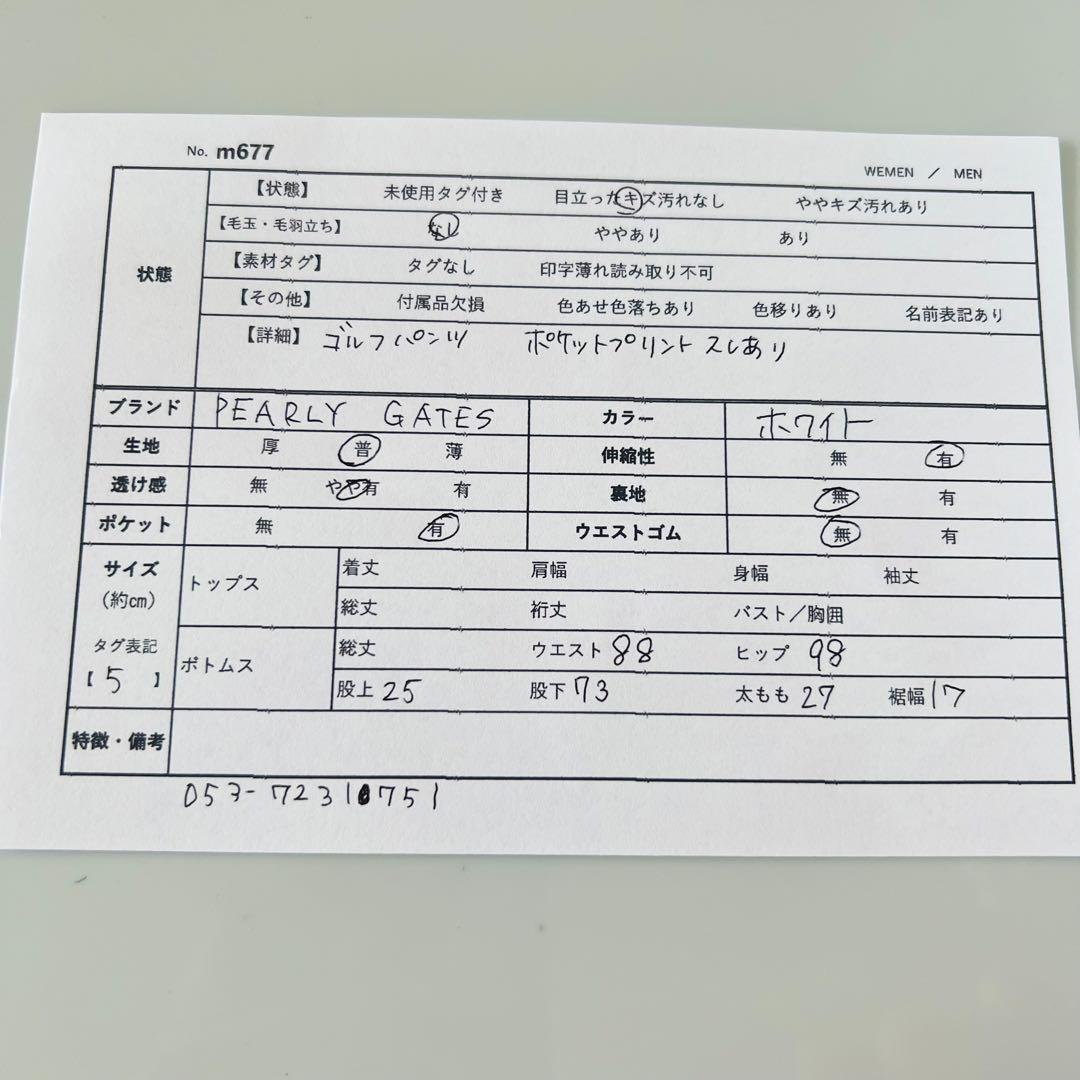 No. m677
WEMEN / MEN
状態
【状態】 未使用タグ付き 目立ったキズ汚れなし ややキズ汚れあり
【毛玉・毛羽立ち】 なし ややあり あり
【素材タグ】 タグなし 印字薄れ読み取り不可
【その他】 付属品欠損 色あせ色落ちあり 色移りあり 名前表記あり
【詳細】 ゴルフパンツ ポケットプリントスレあり
ブランド PEARLY GATES カラー ホワイト
生地 厚 普 薄 伸縮性 無 有
透け感 無 やや有 有 裏地 無 有
ポケット 無 有 ウエストゴム 無 有
サイズ
(約cm)
タグ表記
【 5 】
トップス
着丈 肩幅 身幅 袖丈
総丈 裄丈 バスト／胸囲
ボトムス
総丈 ウエスト 88 ヒップ 98
股上 25 股下 73 太もも 27 裾幅 17
特徴・備考
053-72310751